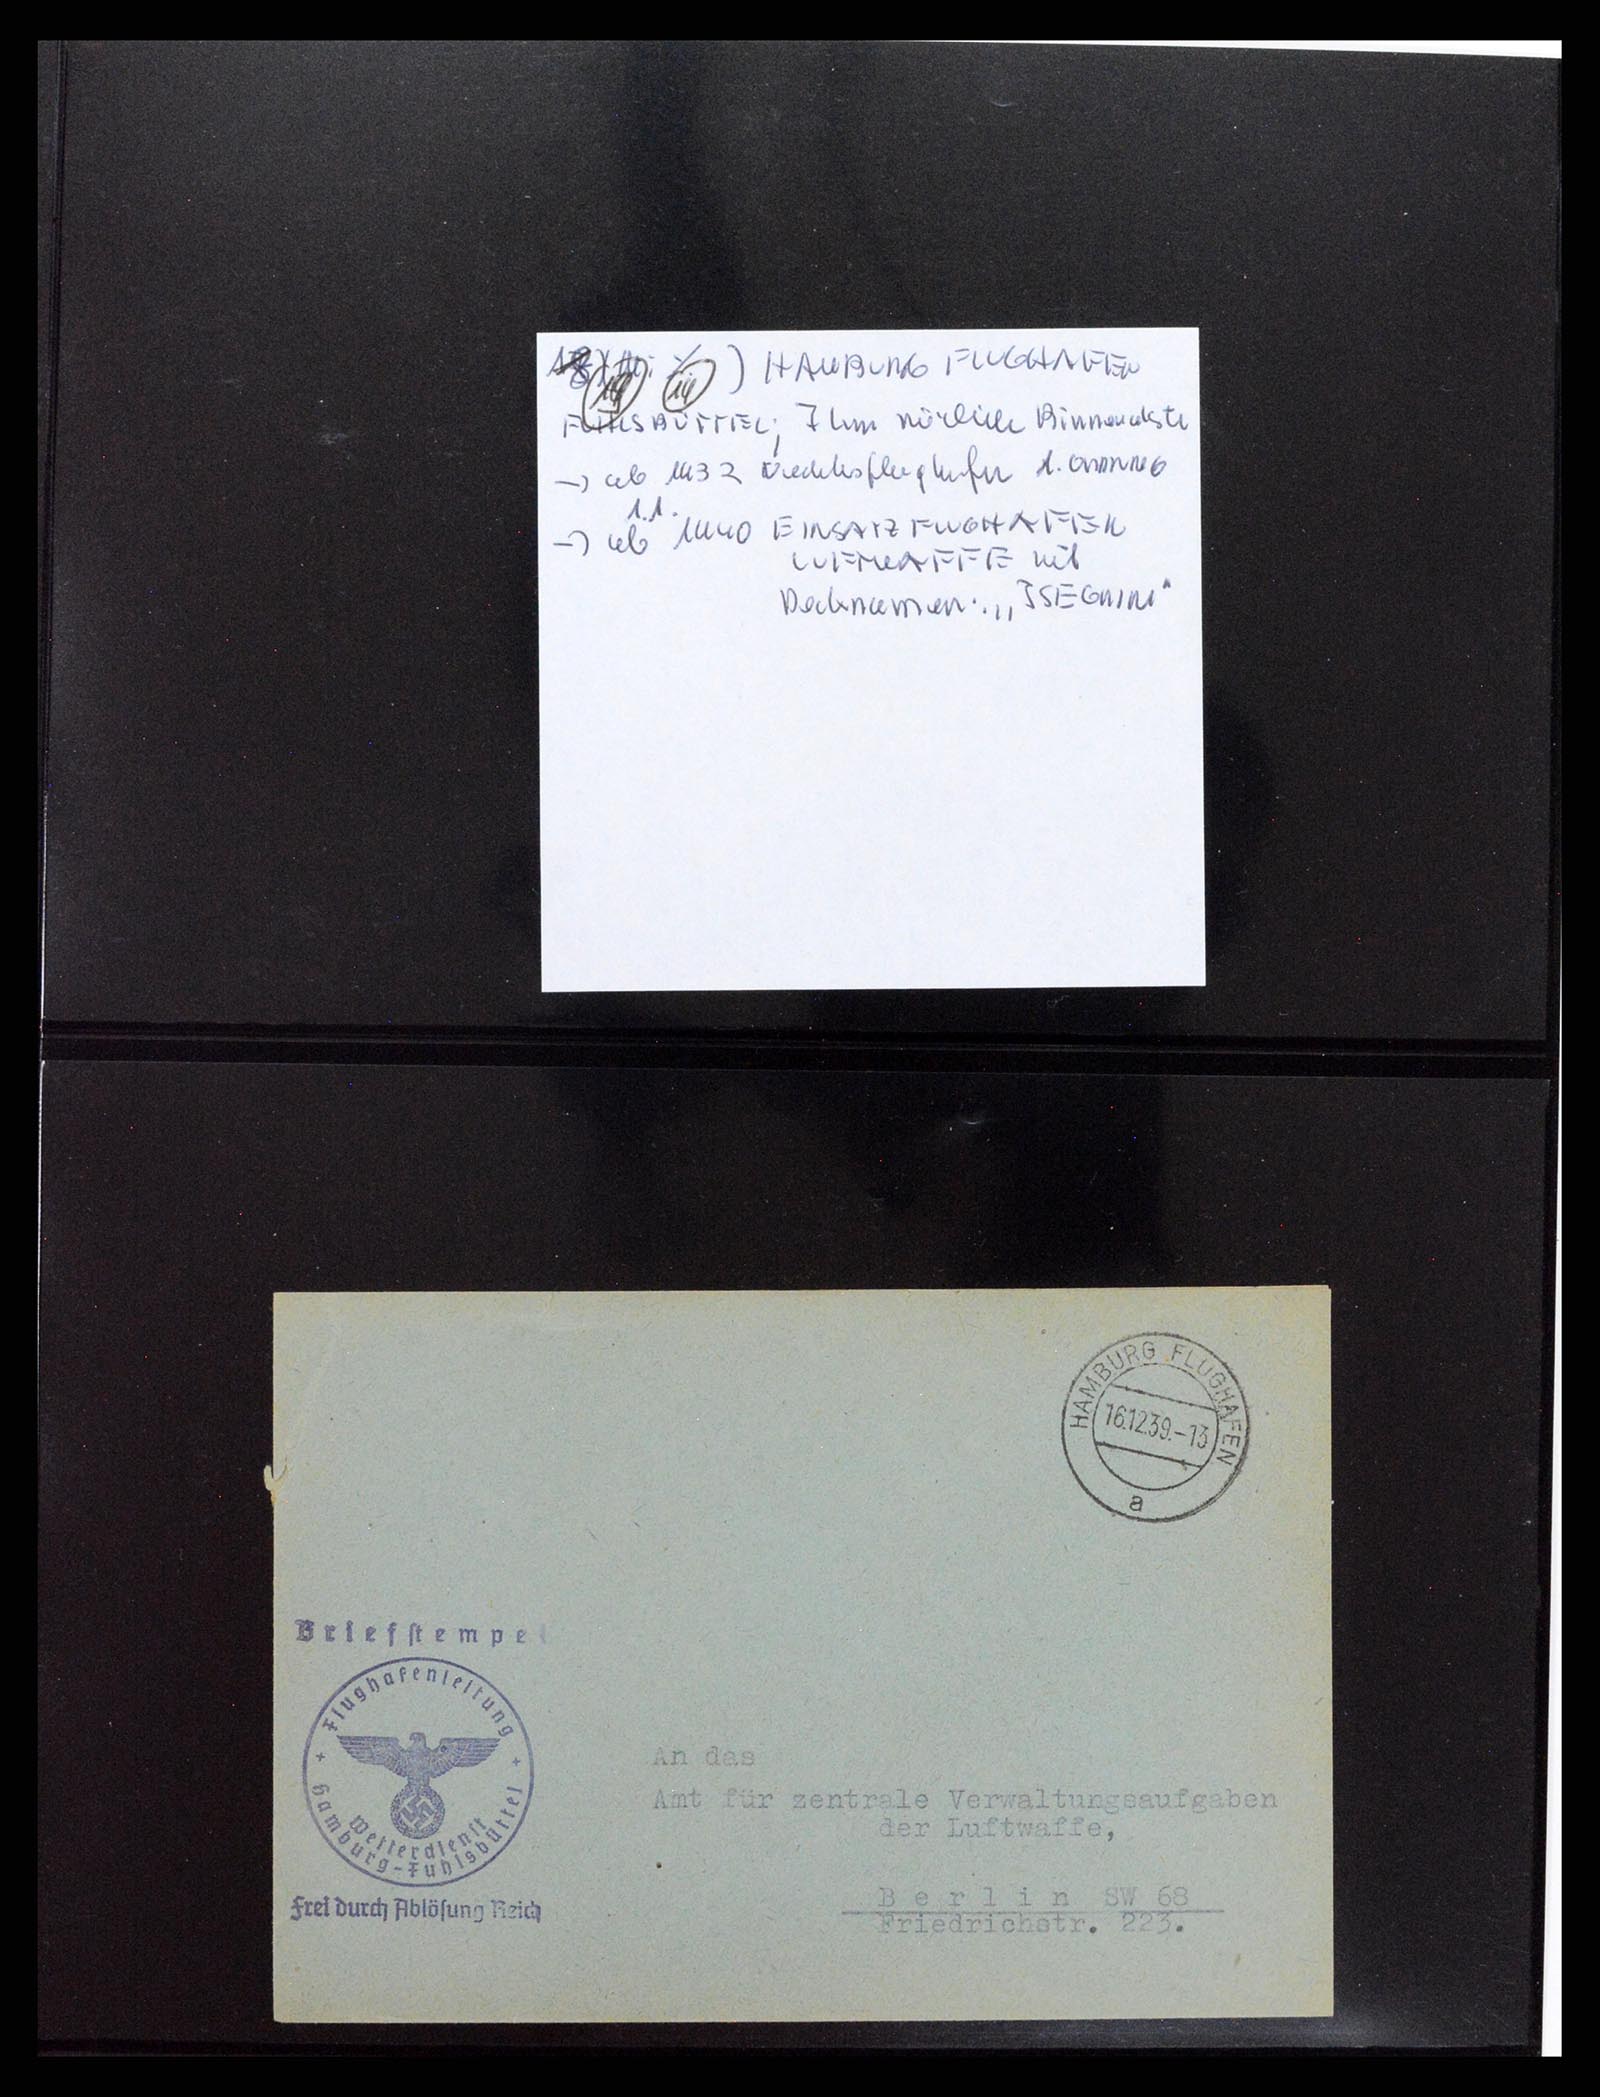 ) HAMBURG FLUGHAFEN
FUHLSBÜTTEL; 7 km nördlich
→ ab 1932 Verkehrsflughafen 1. ORDNUNG
1.1.
→ ab 1940 EINSATZFLUGHAFEN
LUFTWAFFE mit
Decknamen: „ISEGRIM“
HAMBURG FLUGHAFEN
16.12.39.-13
a
Briefstempel
Flughafenleitung
Wetterdienst
Hamburg-Fuhlsbüttel
Frei durch Ablösung Reich
An das
Amt für zentrale Verwaltungsaufgaben
der Luftwaffe,
Berlin SW 68
Friedrichstr. 223.